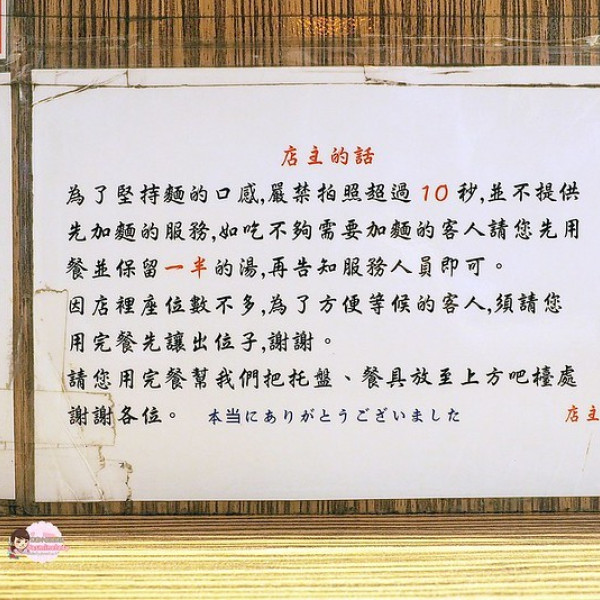 店主的話
為了堅持麵的口感,嚴禁拍照超過10秒,並不提供
先加麵的服務,如吃不夠需要加麵的客人請您先用
餐並保留一半的湯,再告知服務人員即可。
因店裡座位數不多,為了方便等候的客人,須請您
用完餐先讓出位子,謝謝。
請您用完餐幫我們把托盤、餐具放至上方吧檯處
謝謝各位。 本当にありがとうございました 店主